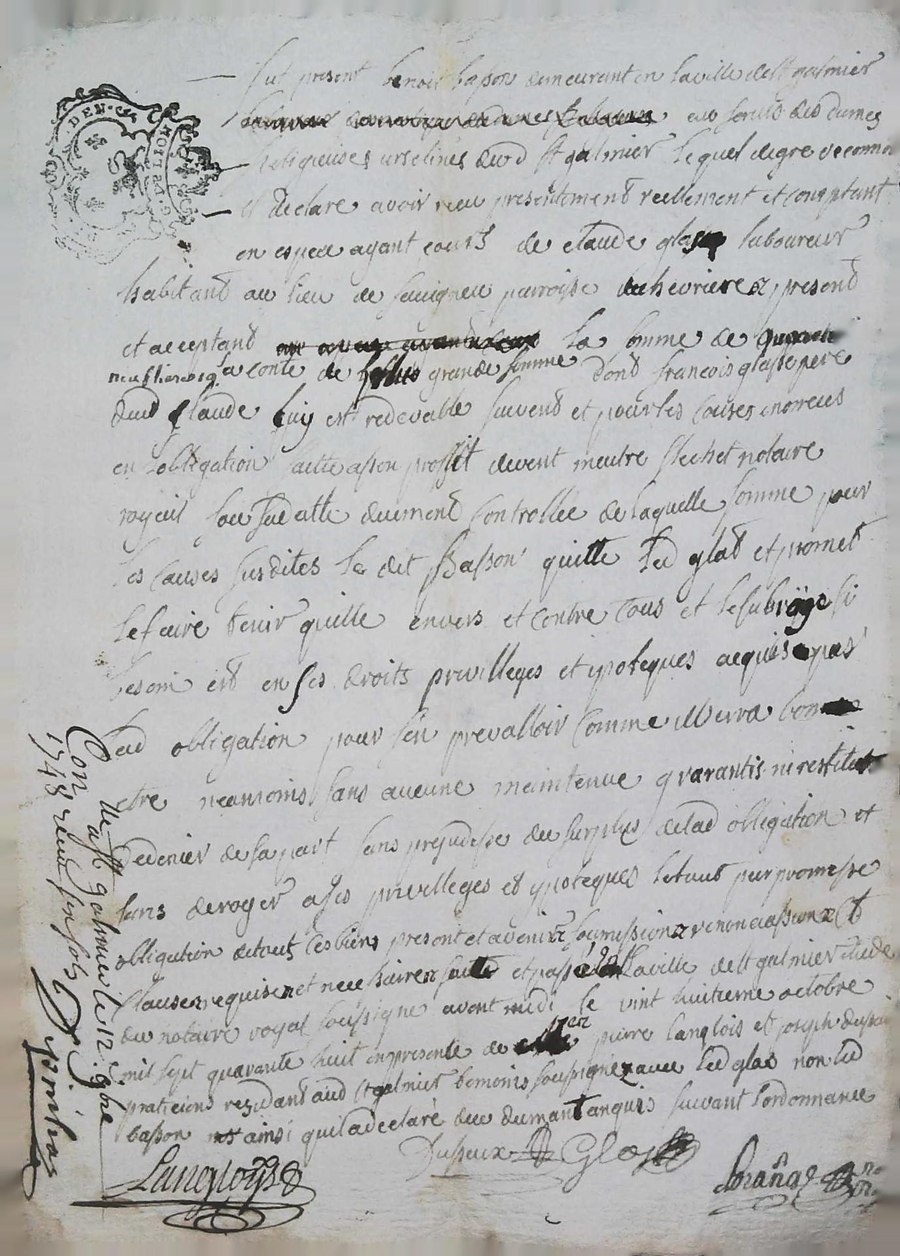 fut present benoit basson demeurant en laville de st galmier
au servis des dames
religieuses urselines dud st galmier lequel de gre
et declare avoir receu presentement reellement et comptant
en espece ayant cours de claude glas laboureur
habitant au lieu de parroisse chevriere present
et acceptant la somme de
a conte de plus grande somme dont francois glasse pere
dud Claude luy est redevable suivent et pour les causes
en lobligation faitte asson proffit devent meutre notaire
royeil sou sadatte duement Controllée de laquelle somme pour
les causes susdites le dit Basson quitte led glas et promet
le faire tenir quitte envers et contre tous et le subroge si
besoin est en ses droits privilleges et ypoteques acquis
lad obligation pour sen prevalloir comme il verra bon
etre neanmoins sans aucune maintenue garantis ni restitut
dedenier de sa part sans prejudisse du surplus delad obligation et
sans deroger a ses privilleges et ypoteques le tout par promesse
obligation de tout ces biens present et avenir soumission renonciassion et
Clause requise et necessaire fait et passé laville de st galmier etude
du notaire royal soussigne avant midi le vint huitieme octobre
mil sept quarante huit en presence de pierre langlois et joseph
praticiens residant aud st galmier soussigne avec led glas non led
basson ainsi quil a declaré suivant lordonnance
Langlois Dusseux Glas
Con
lle a st galmier le 12 9bre
1748 receu six sols